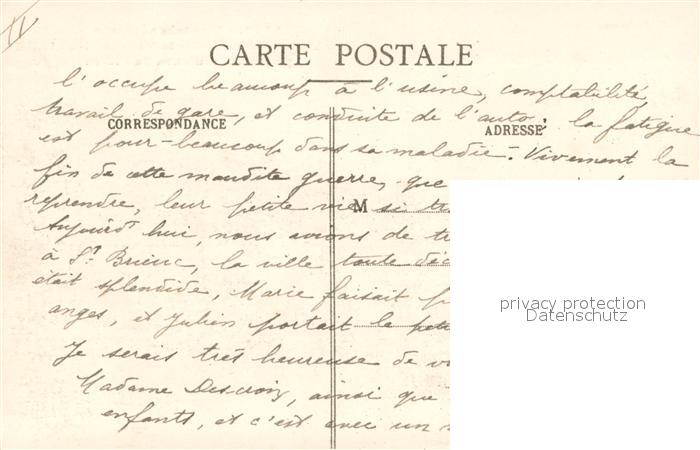 CARTE POSTALE
l'occupe beaucoup à l'usine, comptabilité,
travail de gare, et conduite de l'auto; la fatigue
CORRESPONDANCE
ADRESSE
est pour beaucoup dans sa maladie. Vivement la
fin de cette maudite guerre, que
reprendre, leur petite vie si
M
Aujourd'hui, nous avions de
à St. Brieuc, la ville toute
était splendide, Marie faisait
anges, et Julien portait la
privacy protection
Datenschutz
Je serais très heureuse de
Madame Descroix, ainsi que
enfants, et c'est avec un